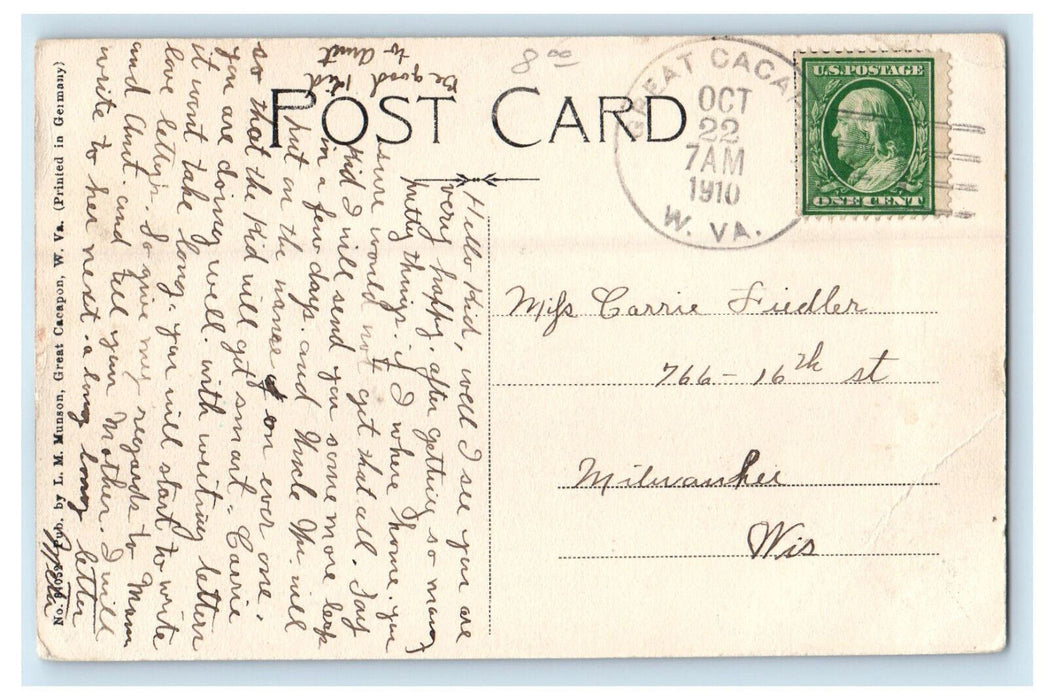 8 00
POST CARD
GREAT CACA
OCT
22
7AM
1910
W. VA.
U.S. POSTAGE
ONE CENT
Miss Carrie Fiedler
766 - 16th st
Milwaukee
Wis
Hello Kid, well I see you are
very happy. after getting so many
pretty things. if I where home. you
sure would not get that all. Say
Kid I will send you some more
in a few days. and Uncle Wm. will
put on the names on ever one.
so that the Kid will get smart. Carrie
you are doing well. with writing letters
it wont take long. you will start to write
love letters. So give my regards to Mam
and Aunt. and tell your Mother. I will
write to her next. a long long letter
Be good Kid
to Aunt
No. Pub. by L. M. Munson, Great Cacapon, W. Va. (Printed in Germany)